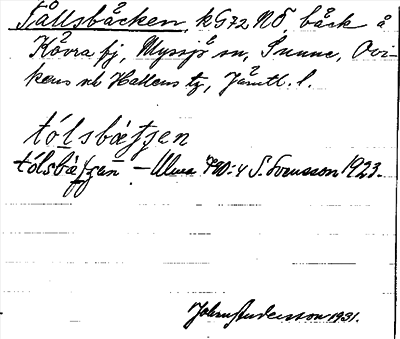 Tållsbäcken, kG72 NÖ, bäck å
Kövra fj, Myssjö sn, Sunne, Ovi-
kens och Hallens tg, Jämtl. l.
tólsbætʃen
tólsbætʃen – Ulma 790:4 S. Svensson 1923.
John Andersson 1931.